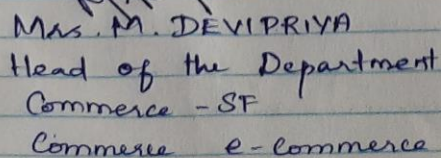 Mrs. M. DEVIPRIYA
Head of the Department
Commerce - SF
Commerce e-commerce